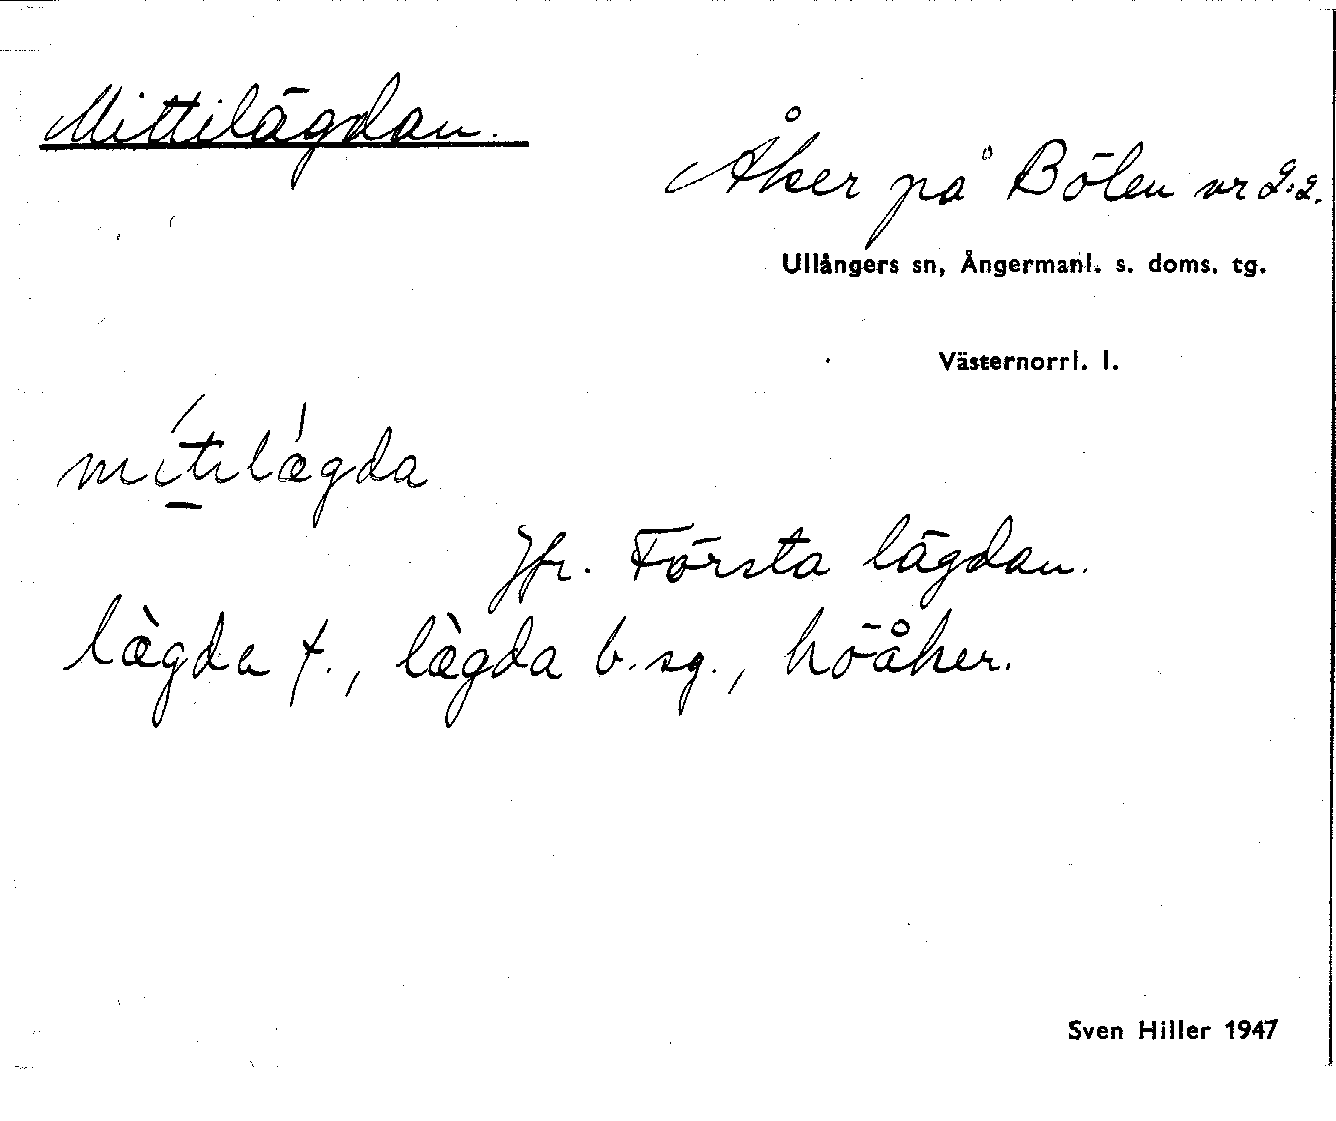 Mittilägdan.
Åker på Bölen nr 2:2.
Ullångers sn, Ångermanl. s. doms. tg.
Västernorrl. l.
mítilǽgda
Jfr. Första lägdan.
læ̀gda f., læ̀gda b. sg., höåker.
Sven Hiller 1947